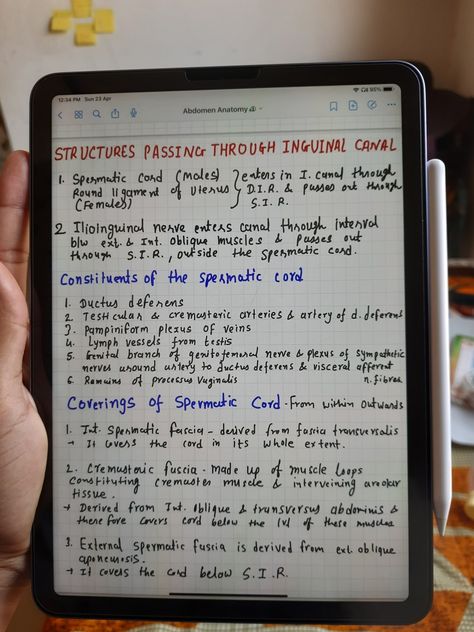 12:34 PM Sun 23 Apr
95%
Abdomen Anatomy
STRUCTURES PASSING THROUGH INGUINAL CANAL
1. Spermatic Cord (Males) } enters in I. canal through
Round ligament of Uterus } D.I.R. & passes out through
(Females) } S.I.R.
2 Ilioinguinal nerve enters canal through interval
b/w ext. & Int. oblique muscles & Passes out
through S.I.R., outside the spermatic cord.
Constituents of the spermatic cord
1. Ductus deferens
2. Testicular & cremasteric arteries & artery of d. deferens
3. Pampiniform plexus of veins
4. Lymph vessels from testis
5. Genital branch of genitofemoral nerve & plexus of sympathetic
nerves around artery to ductus deferens & visceral afferent
n. fibres
6. Remains of processus vaginalis
Coverings of Spermatic Cord - From within outwards
1. Int. Spermatic fascia - derived from fascia transversalis
→ It covers the cord in its whole extent.
2. Cremasteric fascia - Made up of muscle loops
constituting cremaster muscle & interveining areolar
tissue.
→ Derived from Int. oblique & transversus abdominis &
there fore covers cord below the lvl of these muscles
3. External spermatic fascia is derived from ext. oblique
aponeurosis.
→ It covers the cord below S.I.R.